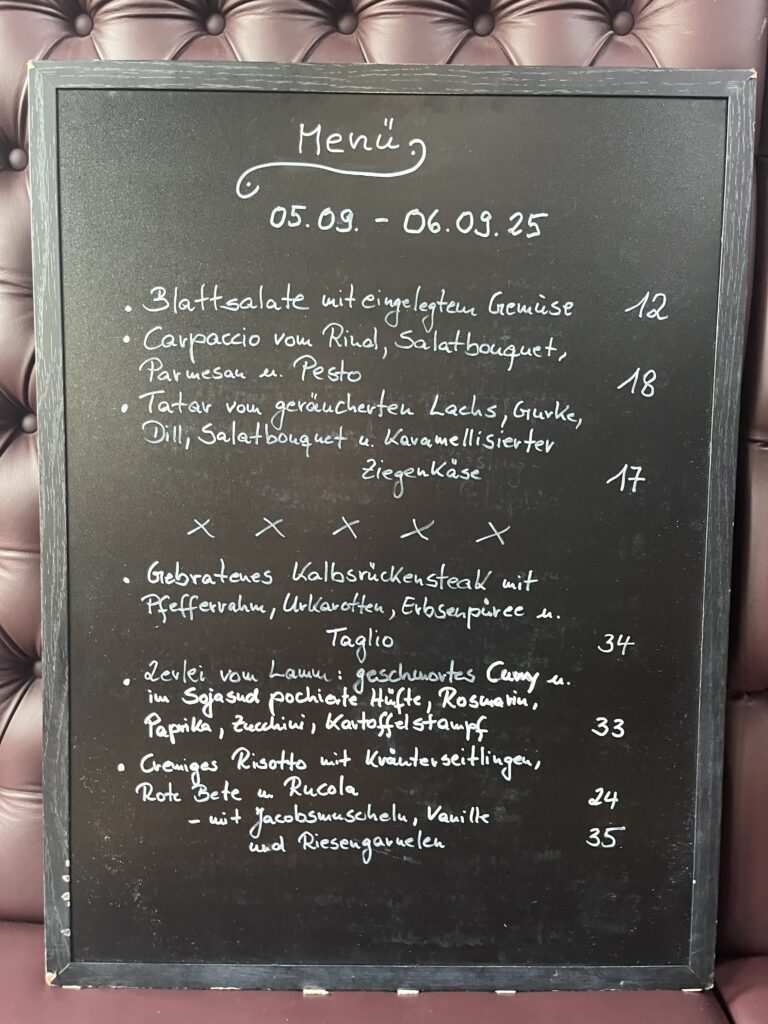 Menü
05.09. - 06.09.25
• Blattsalate mit eingelegtem Gemüse 12
• Carpaccio vom Rind, Salatbouquet,
Parmesan u. Pesto 18
• Tatar vom geräucherten Lachs, Gurke,
Dill, Salatbouquet u. Karamellisierter
Ziegenkäse 17
x x x x x
• Gebratenes Kalbsrückensteak mit
Pfefferrahm, Urkarotten, Erbsenpüree u.
Taglio 34
• 2erlei vom Lamm: geschmortes Curry u.
im Sojasud pochierte Hüfte, Rosmarin,
Paprika, Zucchini, Kartoffelstampf 33
• Cremiges Risotto mit Kräuterseitlingen,
Rote Bete u. Rucola 24
- mit Jacobsmuscheln, Vanille
und Riesengarnelen 35